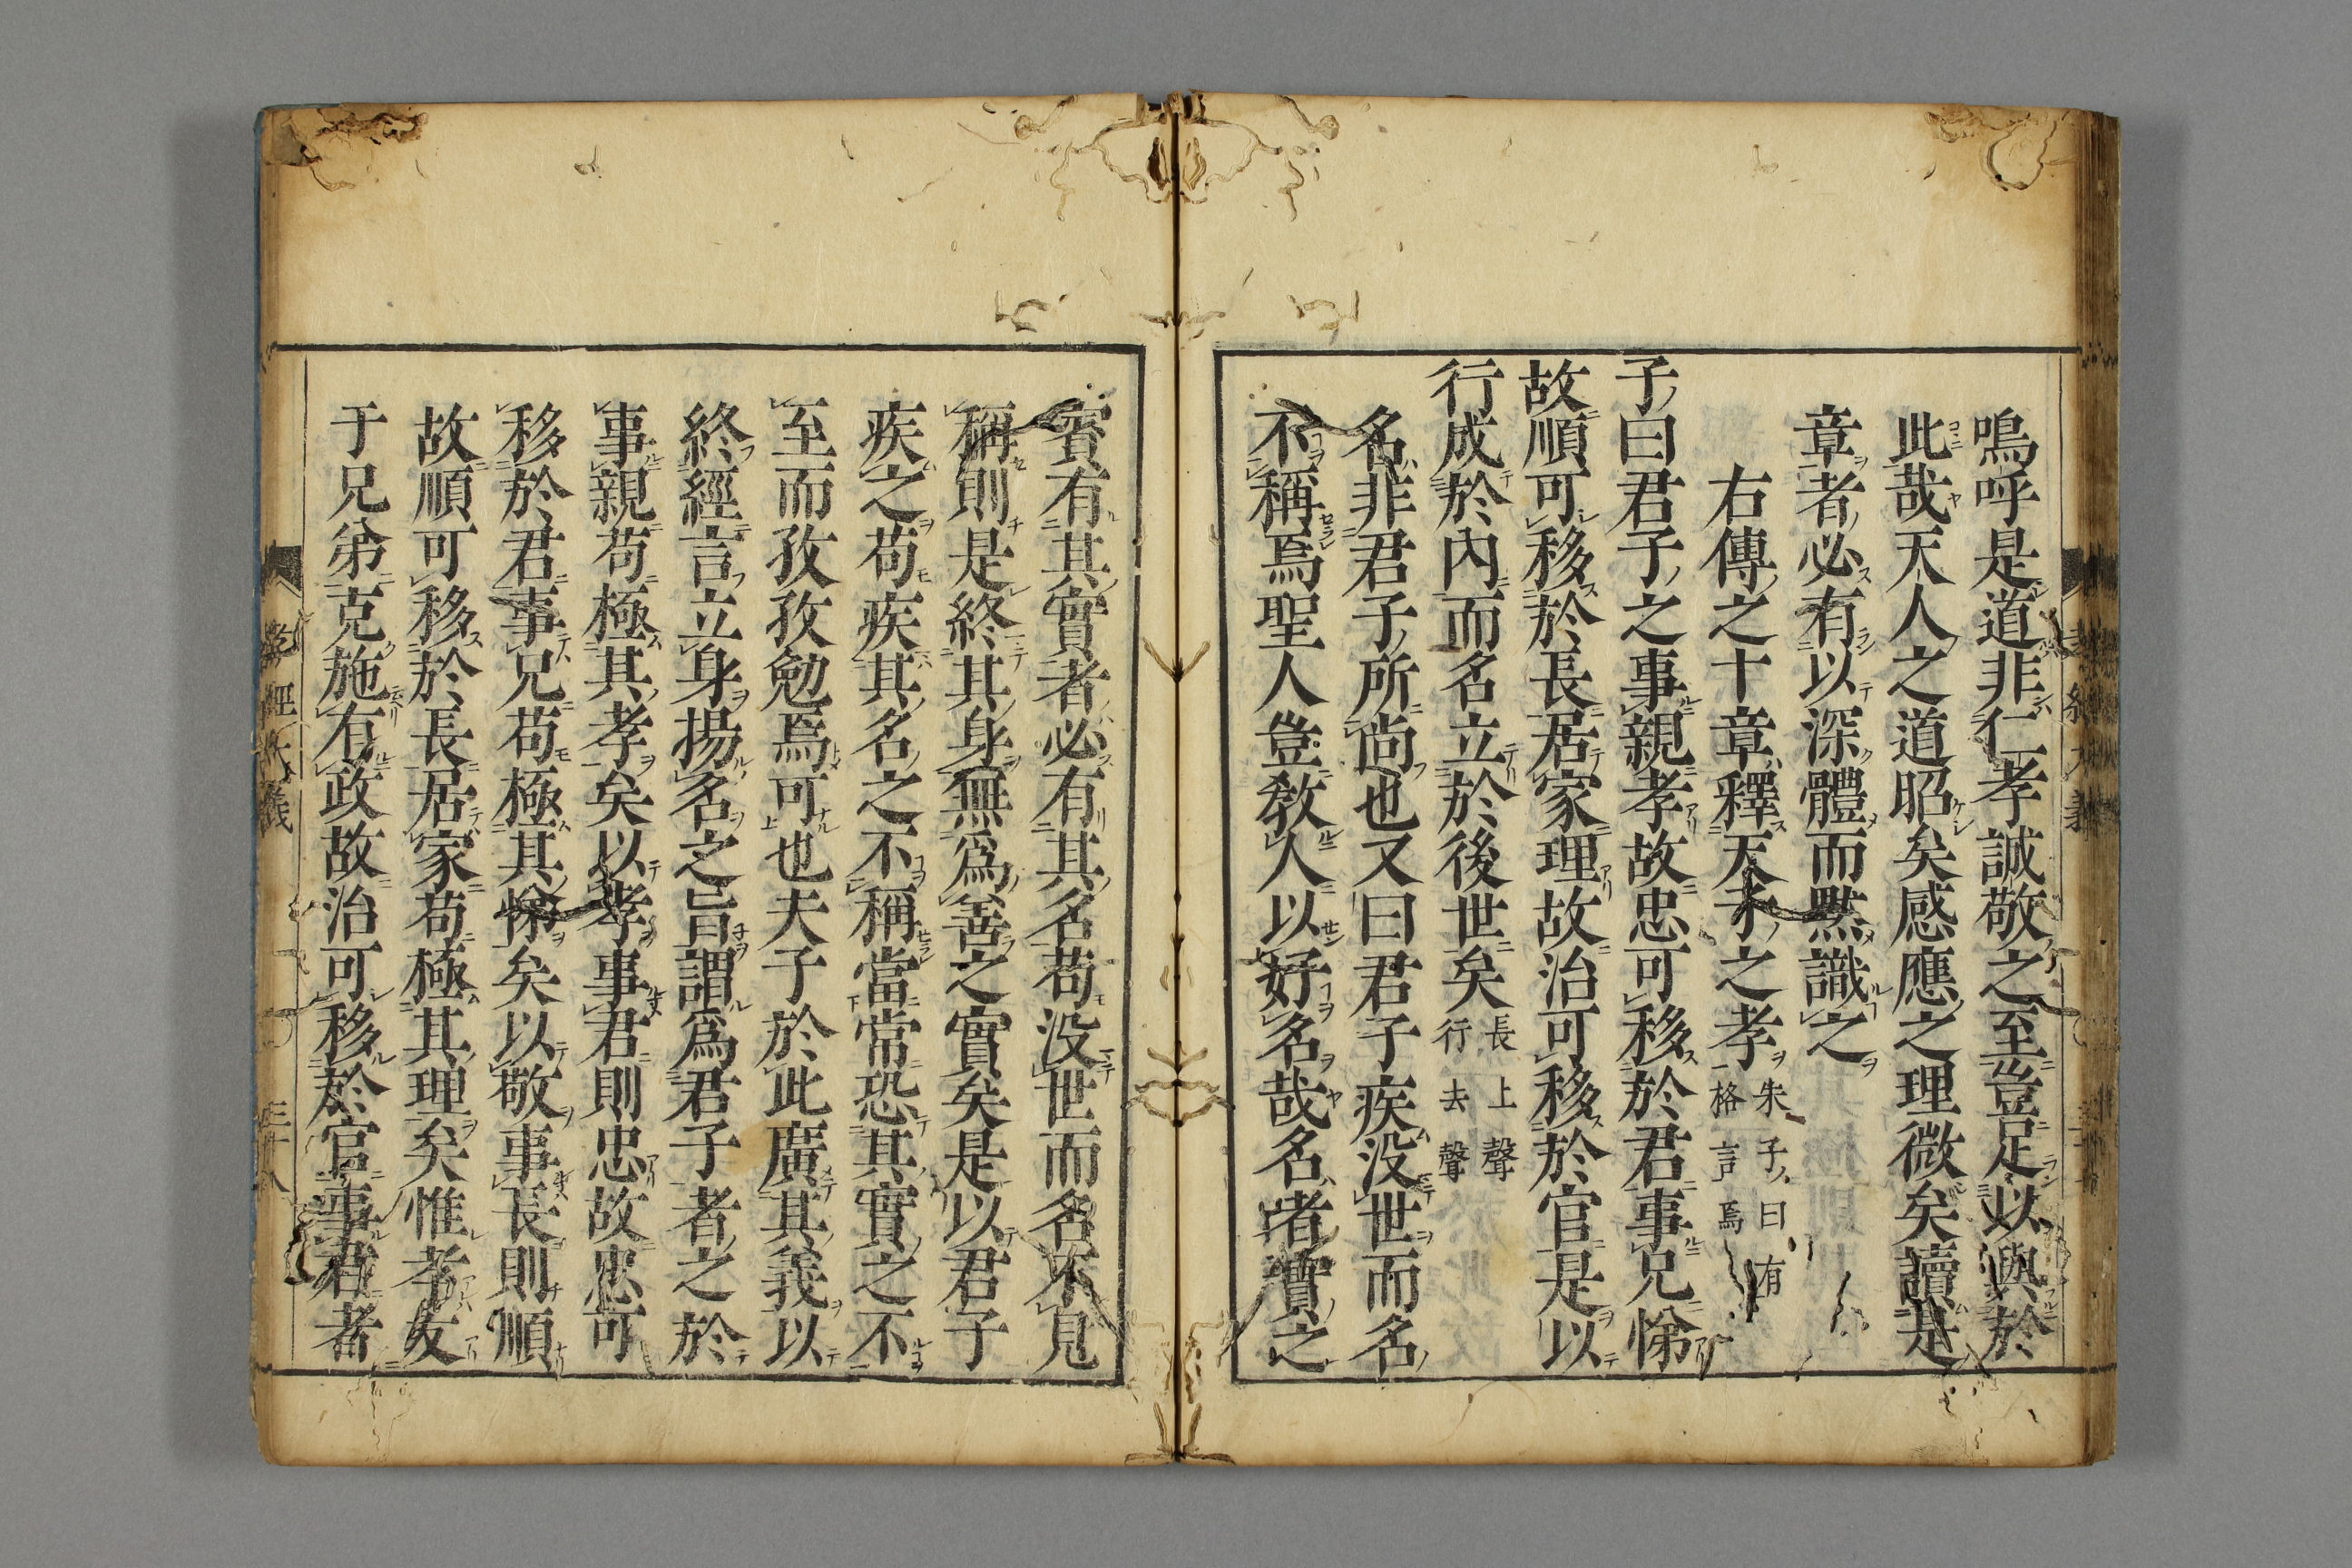 嗚呼是道非仁孝誠敬之至豈足以與於
此哉天人之道昭矣感應之理微矣讀是
章者必有以深體而默識之
右傳之十章釋天子之孝朱子曰有格言焉
子曰君子之事親孝故忠可移於君事兄悌
故順可移於長居家理故治可移於官是以
行成於內而名立於後世矣長上聲行去聲
名非君子所尚也又曰君子疾沒世而名
不稱焉聖人豈敎人以好名哉名者實之
賓有其實者必有其名苟沒世而名不見
稱則是終其身無爲善之實矣是以君子
疾之苟疾其名之不稱當常恐其實之不
至而孜孜勉焉可也夫子於此廣其義以
終經言立身揚名之旨謂爲君子者之於
事親苟極其孝矣以孝事君則忠故忠可
移於君事兄苟極其悌矣以敬事長則順
故順可移於長居家苟極其理矣惟孝友
于兄弟克施有政故治可移於官事君者
孝經大義 三十八